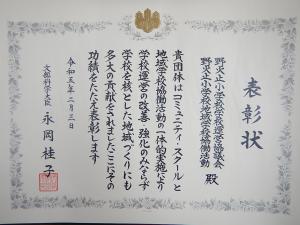 表彰状
野沢正小学校学校運営協議会
野沢正小学校地域学校協働活動
殿
貴団体はコミュニティ・スクールと
地域学校協働活動の一体的実施により
学校運営の改善・強化のみならず
学校を核とした地域づくりにも
多大の貢献をされましたここにその
功績をたたえ表彰します
令和五年二月三日
文部科学大臣 永岡桂子